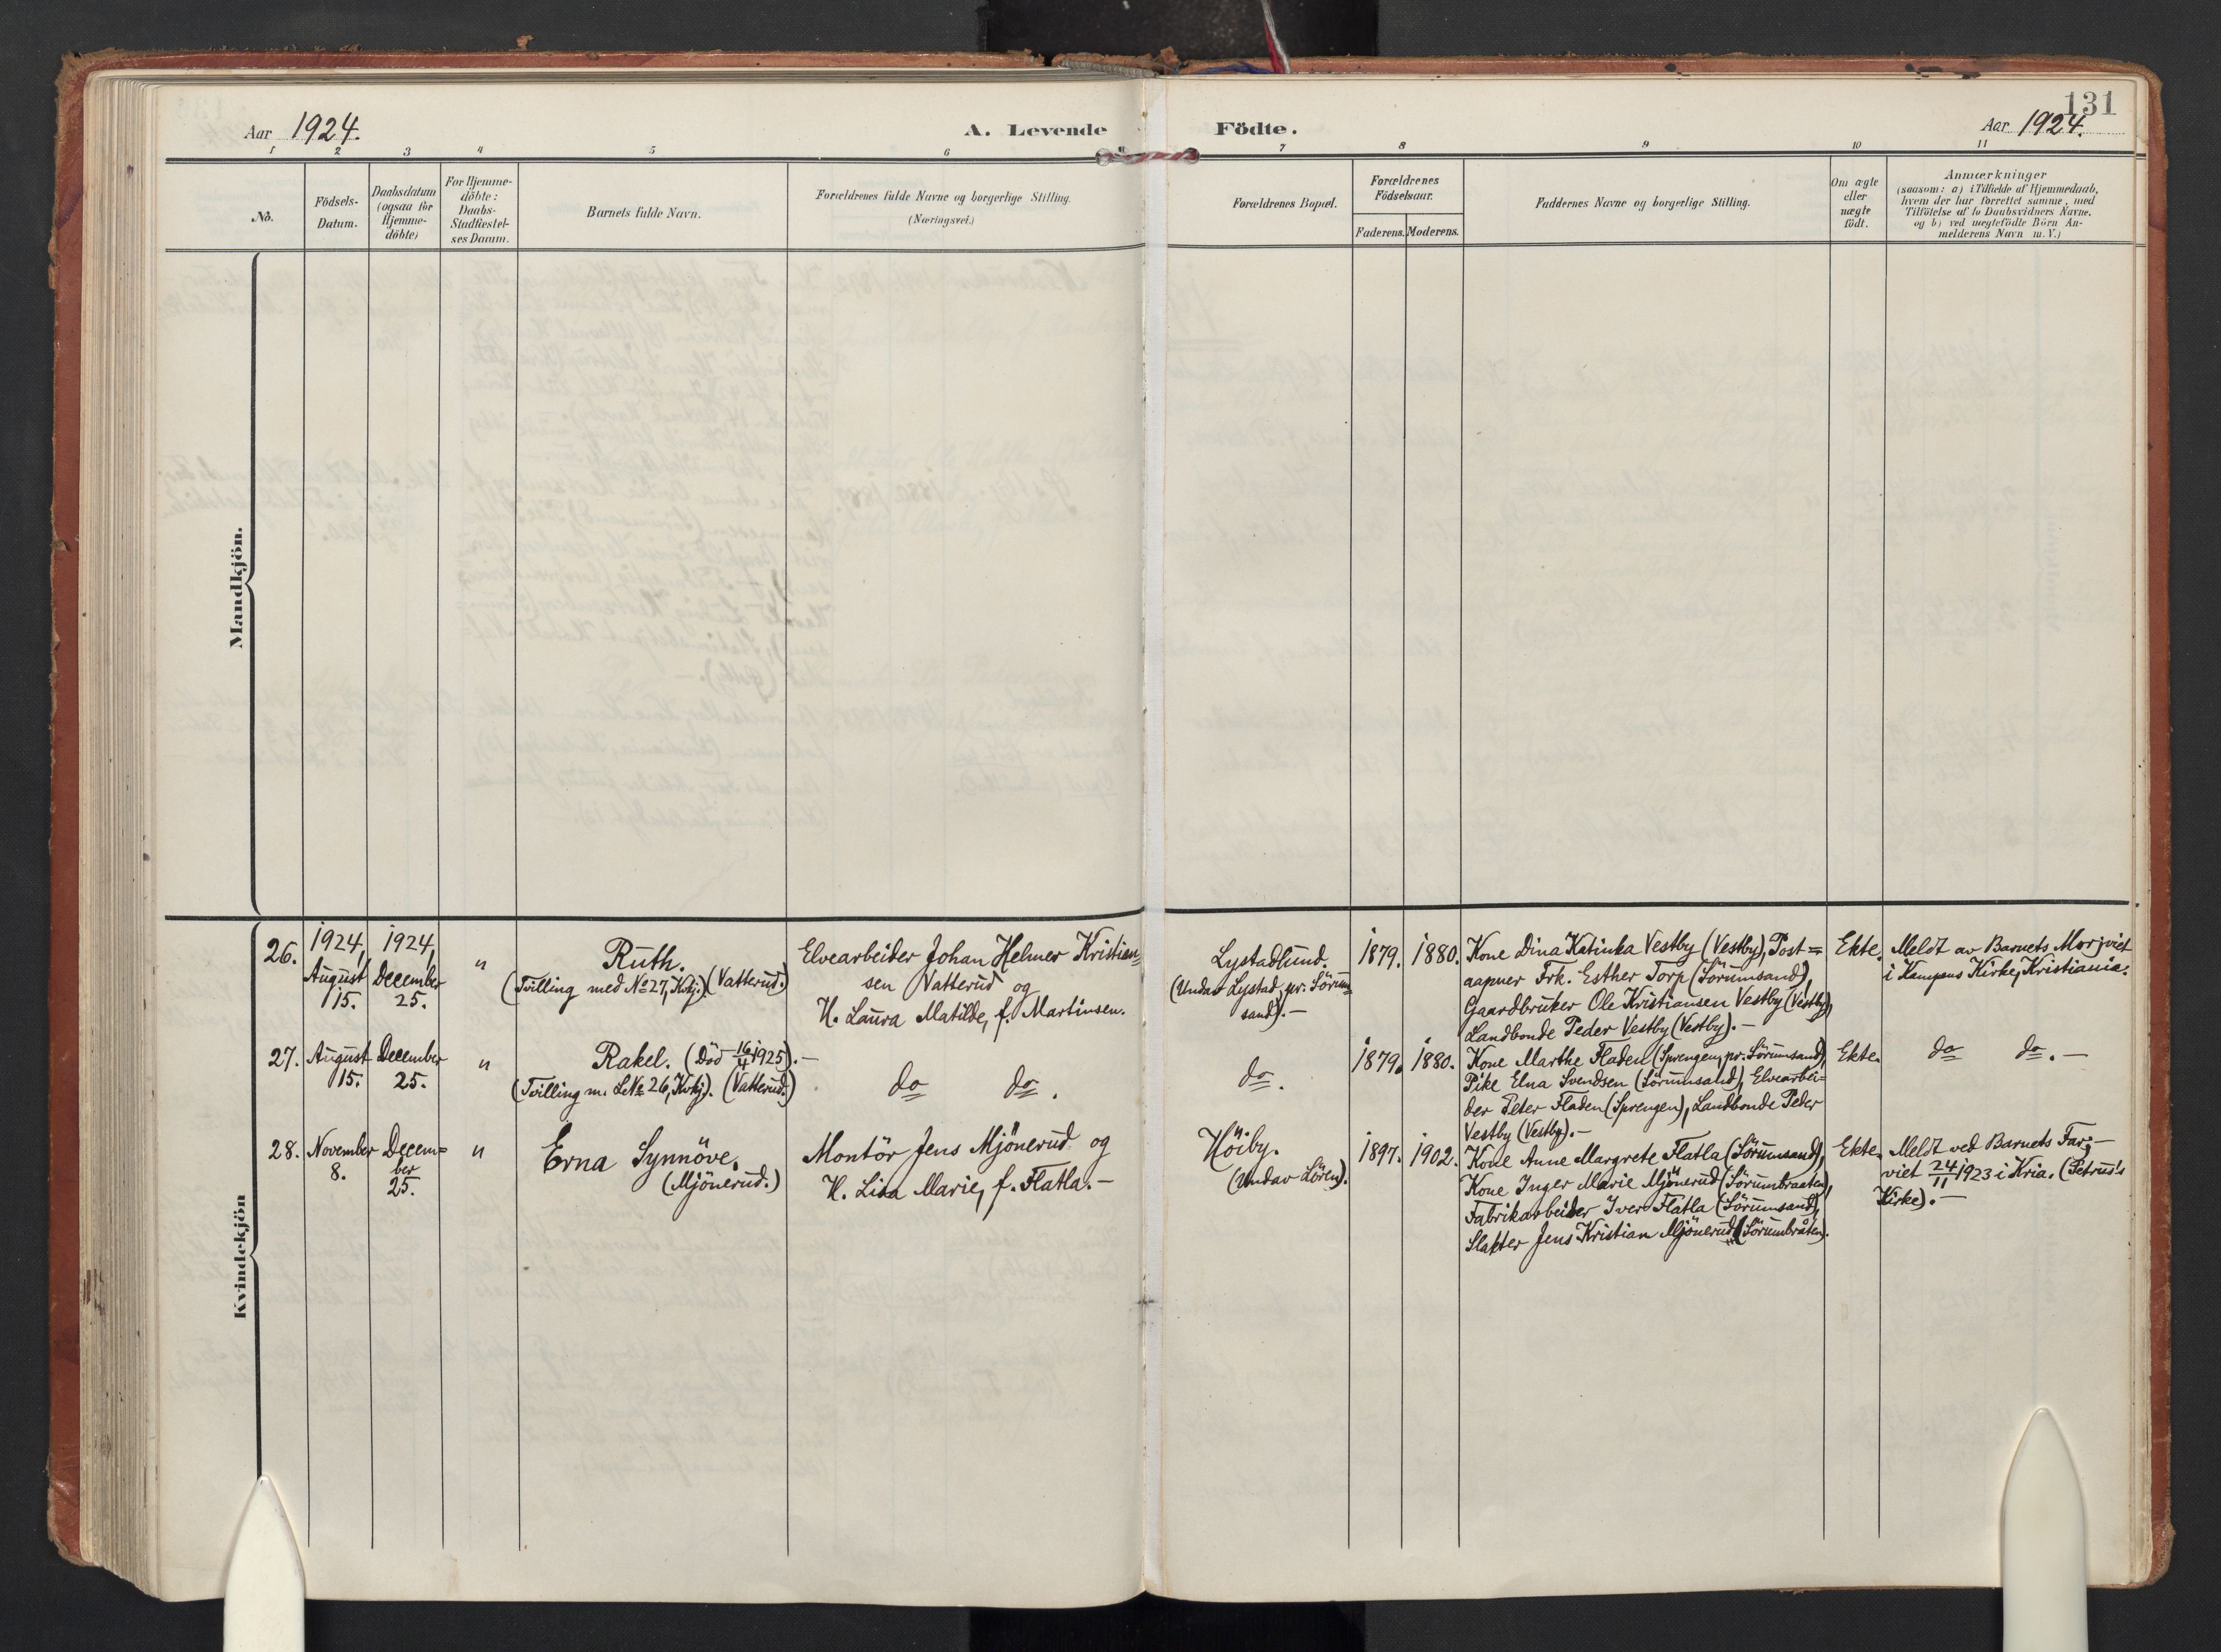 131
Aar 1924.
A. Levende Födte.
Aar 1924.
1 2 3 4 5 6 7 8 9 10 11
No.
Födsels-
Datum.
Daabsdatum
(ogsaa for
Hjemme-
döbte)
For Hjemme-
döbte:
Daabs-
Stadfæstel-
ses Datum.
Barnets fulde Navn.
Forældrenes fulde Navne og borgerlige Stilling.
(Næringsvei.)
Forældrenes Bopæl.
Forældrenes
Födselsaar.
Faderens. Moderens.
Faddernes Navne og borgerlige Stilling.
Om ægte
eller
uægte
födt.
Anmærkninger
(saasom: a) i Tilfælde af Hjemmedaab,
hvem der har forrettet samme, med
Tilföielse af to Daabsvidners Navne.
og b) ved uægtefödte Börn An-
melderens Navn m.V.)
Mandkjön.
Kvindekjön
26.
1924,
August
15.
1924,
December
25.
"
Ruth.
(Tvilling med No 27, Kvkj.) (Vatterud.)
Elvearbeider Johan Helmer Kristian-
sen Vatterud og
H. Laura Matilde, f. Martinsen.
Lystadlund.
(Undav Lystad, pr. Sörum-
sand).—
1879.
1880.
Kone Dina Katinka Vestby (Vestby), Post=
aapner Frk. Esther Torp (Sörumsand),
Gaardbruker Ole Kristiansen Vestby (Vestby),
Landbonde Peder Vestby (Vestby).—
Ekte.
Meldt av Barnets Mor; viet
i Kampens Kirke, Kristiania.
27.
August
15.
December
25.
"
Rakel. (Död 16/4 1925).—
(Tvilling m. L№ 26, Kvkj.). (Vatterud.)
do do.
do.
1879.
1880.
Kone Marthe Fladen (Sprengen, pr. Sörumsand),
Pike Elna Svendsen (Sörumsand), Elvearbei=
der Peter Fladen (Sprengen), Landbonde Peder
Vestby (Vestby).—
Ekte.
do do.—
28.
November
8.
Decem=
ber
25.
"
Erna Synnöve.
(Mjönerud.)
Montör Jens Mjönerud og
H. Lisa Marie, f. Flatla.—
Höiby.
(Undav Lören).
1897.
1902.
Kone Anne Margrete Flatla (Sörumsand),
Kone Inger Marie Mjönerud (Sörumbraaten),
Fabrikarbeider Iver Flatla (Sörumsand),
Slakter Jens Kristian Mjönerud (Sörumbråten).
Ekte.
Meldt ved Barnets Far;—
viet 24/11 1923 i Kria. (Petrus's
Kirke).—